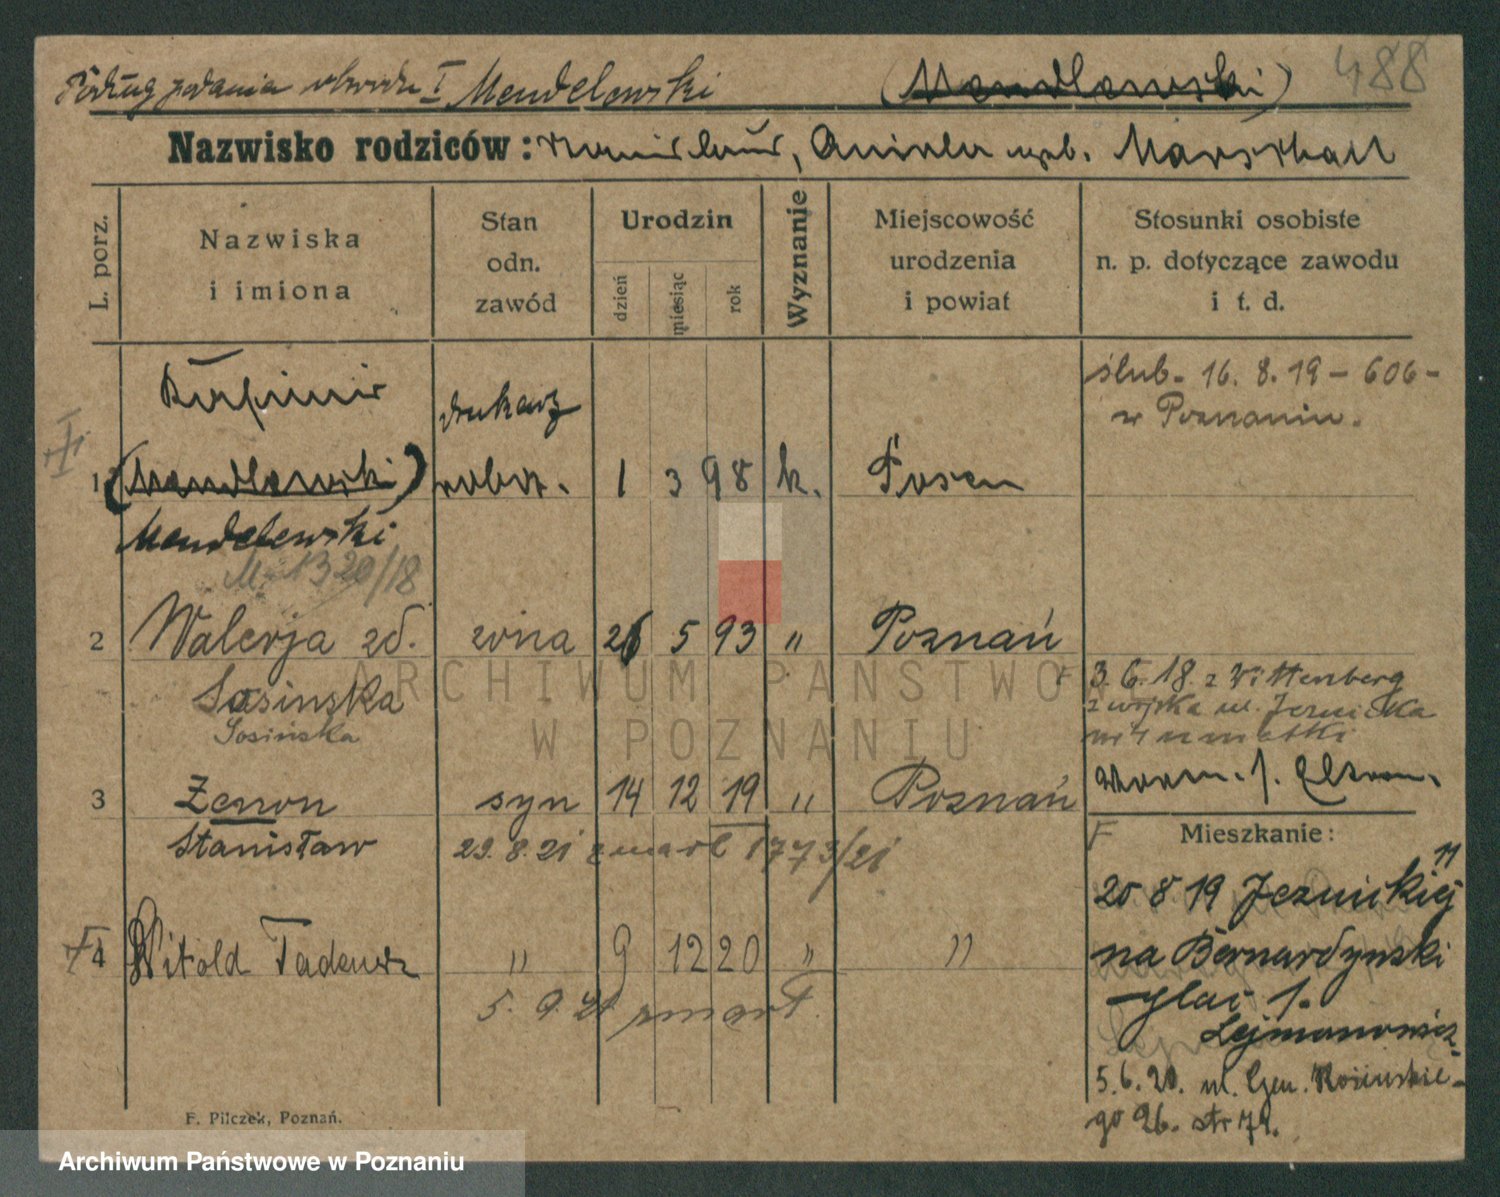 Podług podania obwodu I Mendelewski (Mendlewski) 488
Nazwisko rodziców: Stanisław, Aniela Marszkall
L. porz.
Nazwiska
i imiona
Stan
odn.
zawód
Urodzin
dzień
miesiąc
rok
Wyznanie
Miejscowość
urodzenia
i powiat
Stosunki osobiste
n. p. dotyczące zawodu
i t. d.
Kazimir drukarz
ślub. 16. 8. 19 - 606 -
w Poznaniu.
1 (Mendlewski) robot. 1 3 98 k. Posen
Mendelewski
M. 1320/18
2 Walerja zd. żona 26 5 93 " Poznań
Sosinska
Sosińska
3. 6. 18. z Wittenberg
z wojska ul. Jeżnicka
3 Zenon syn 14 12 19 " Poznań
Stanisław 29. 8. 21 zmarł 1773/21
F Mieszkanie:
20 8 19 Jeznickiej 11
4 Witold Tadeusz " 9 12 20 " "
na Bernardynski
plac 1.
5. 9. 21 zmarł.
Lejmanowicz
5. 6. 20. ul. Gen. Kosińskie-
go 26. str 79.
F. Pilczek, Poznań.
ARCHIWUM PAŃSTWOWE
W POZNANIU
Archiwum Państwowe w Poznaniu